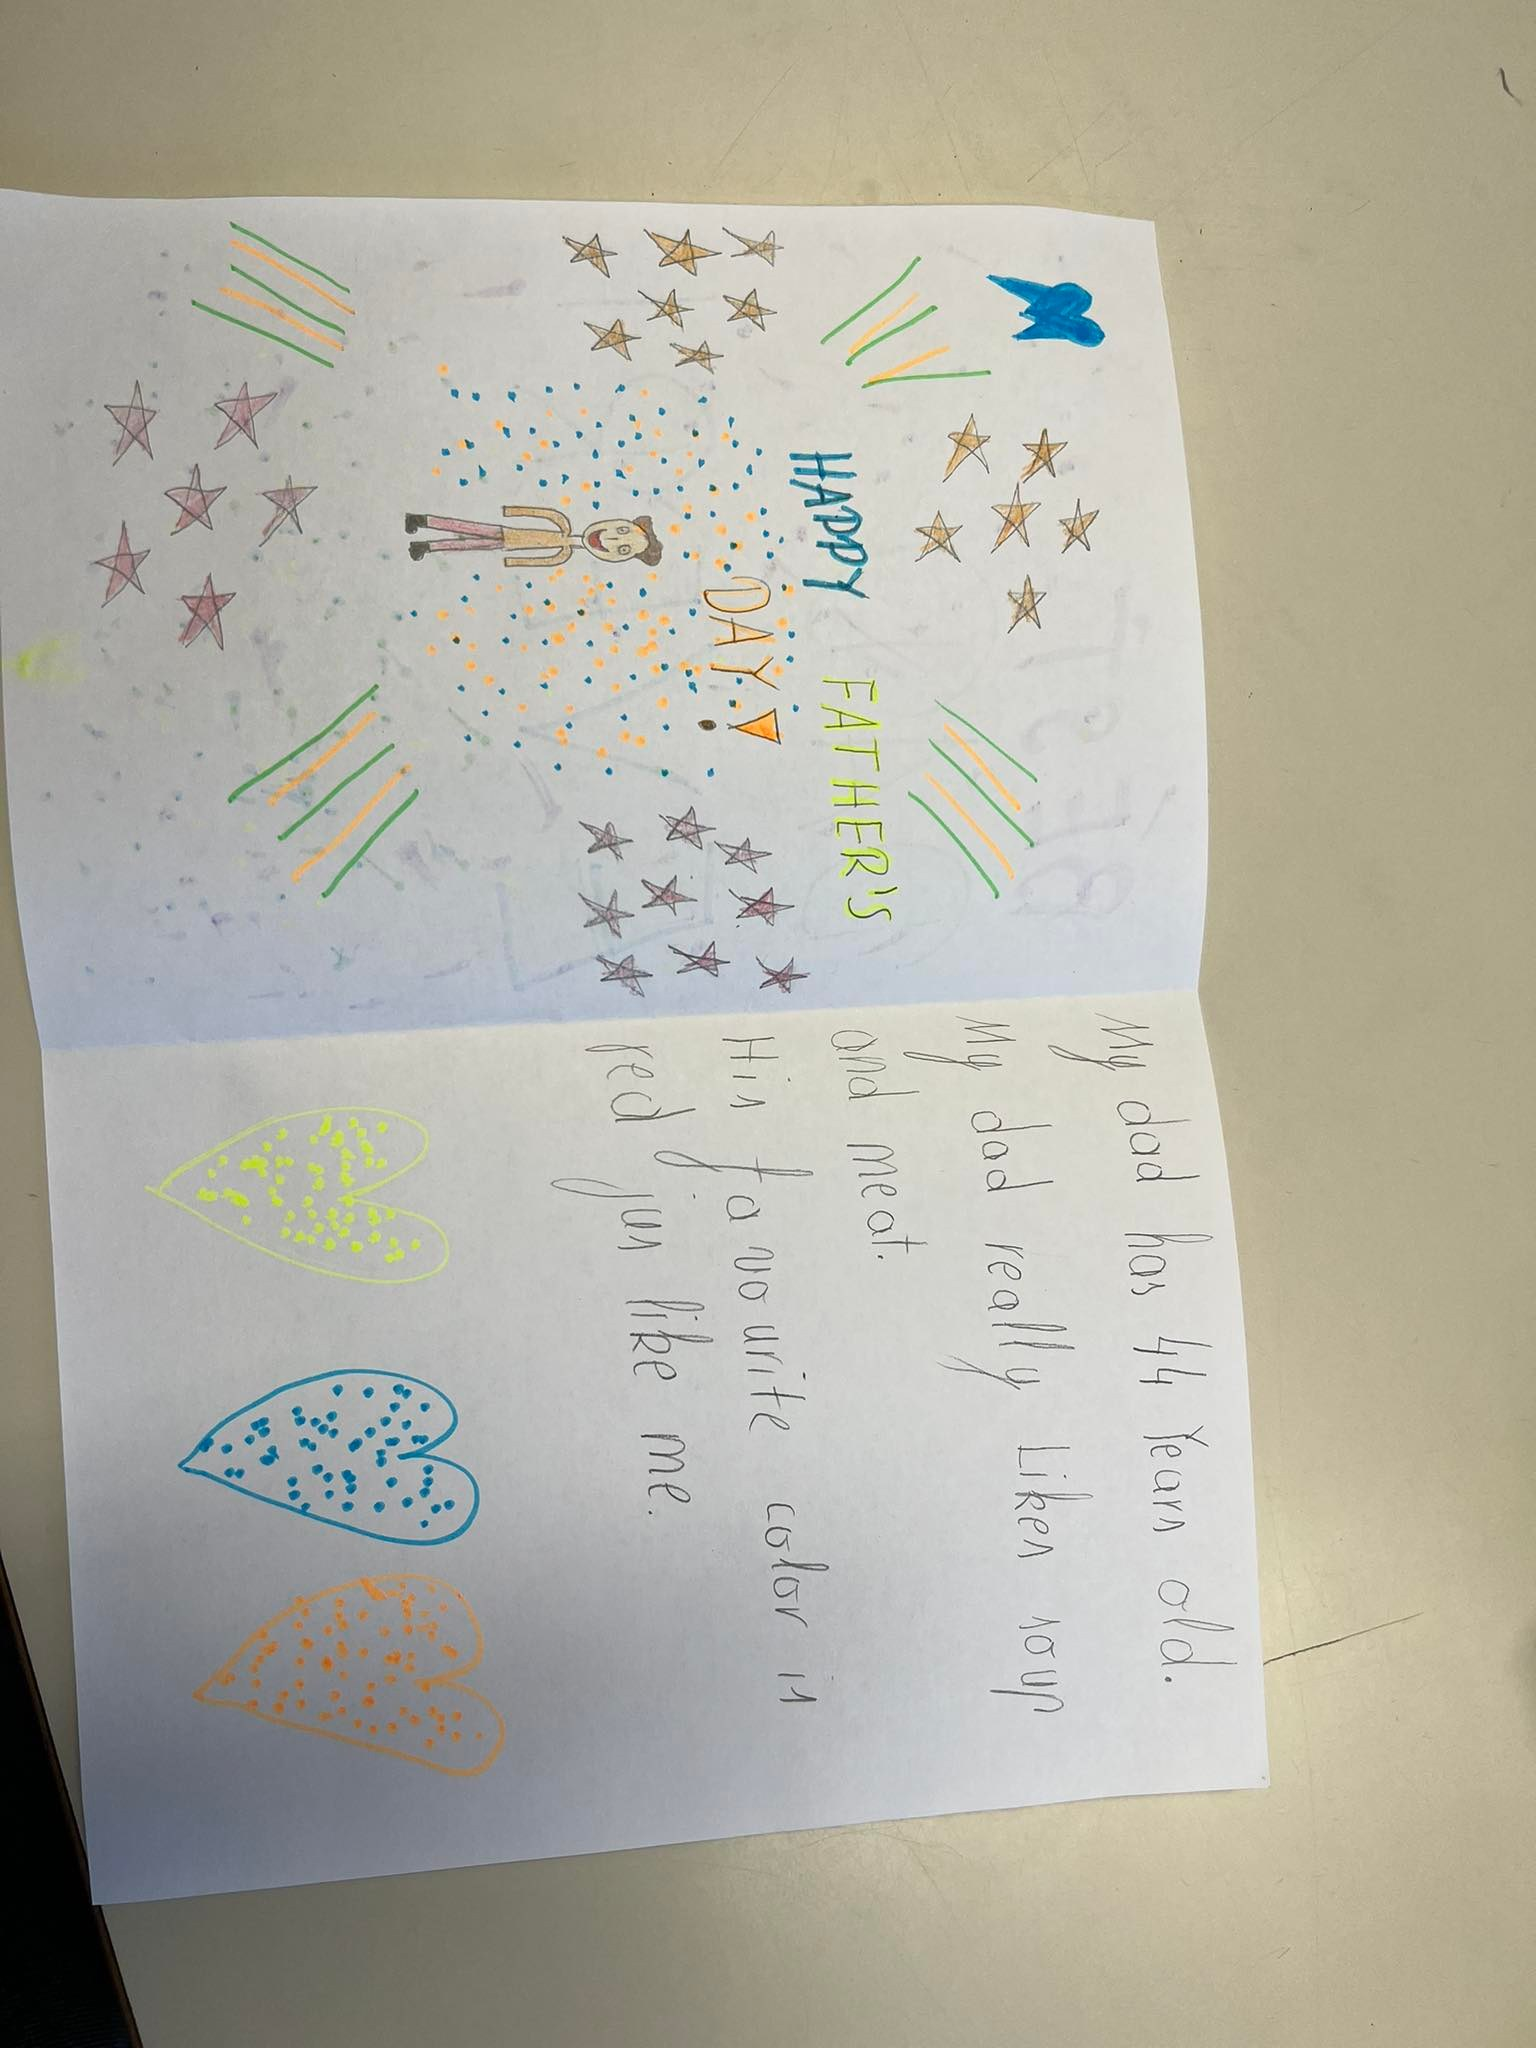 HAPPY FATHER'S
DAY!
My dad has 44 Years old.
My dad really Likes soup
and meat.
His favourite color is
red jus like me.